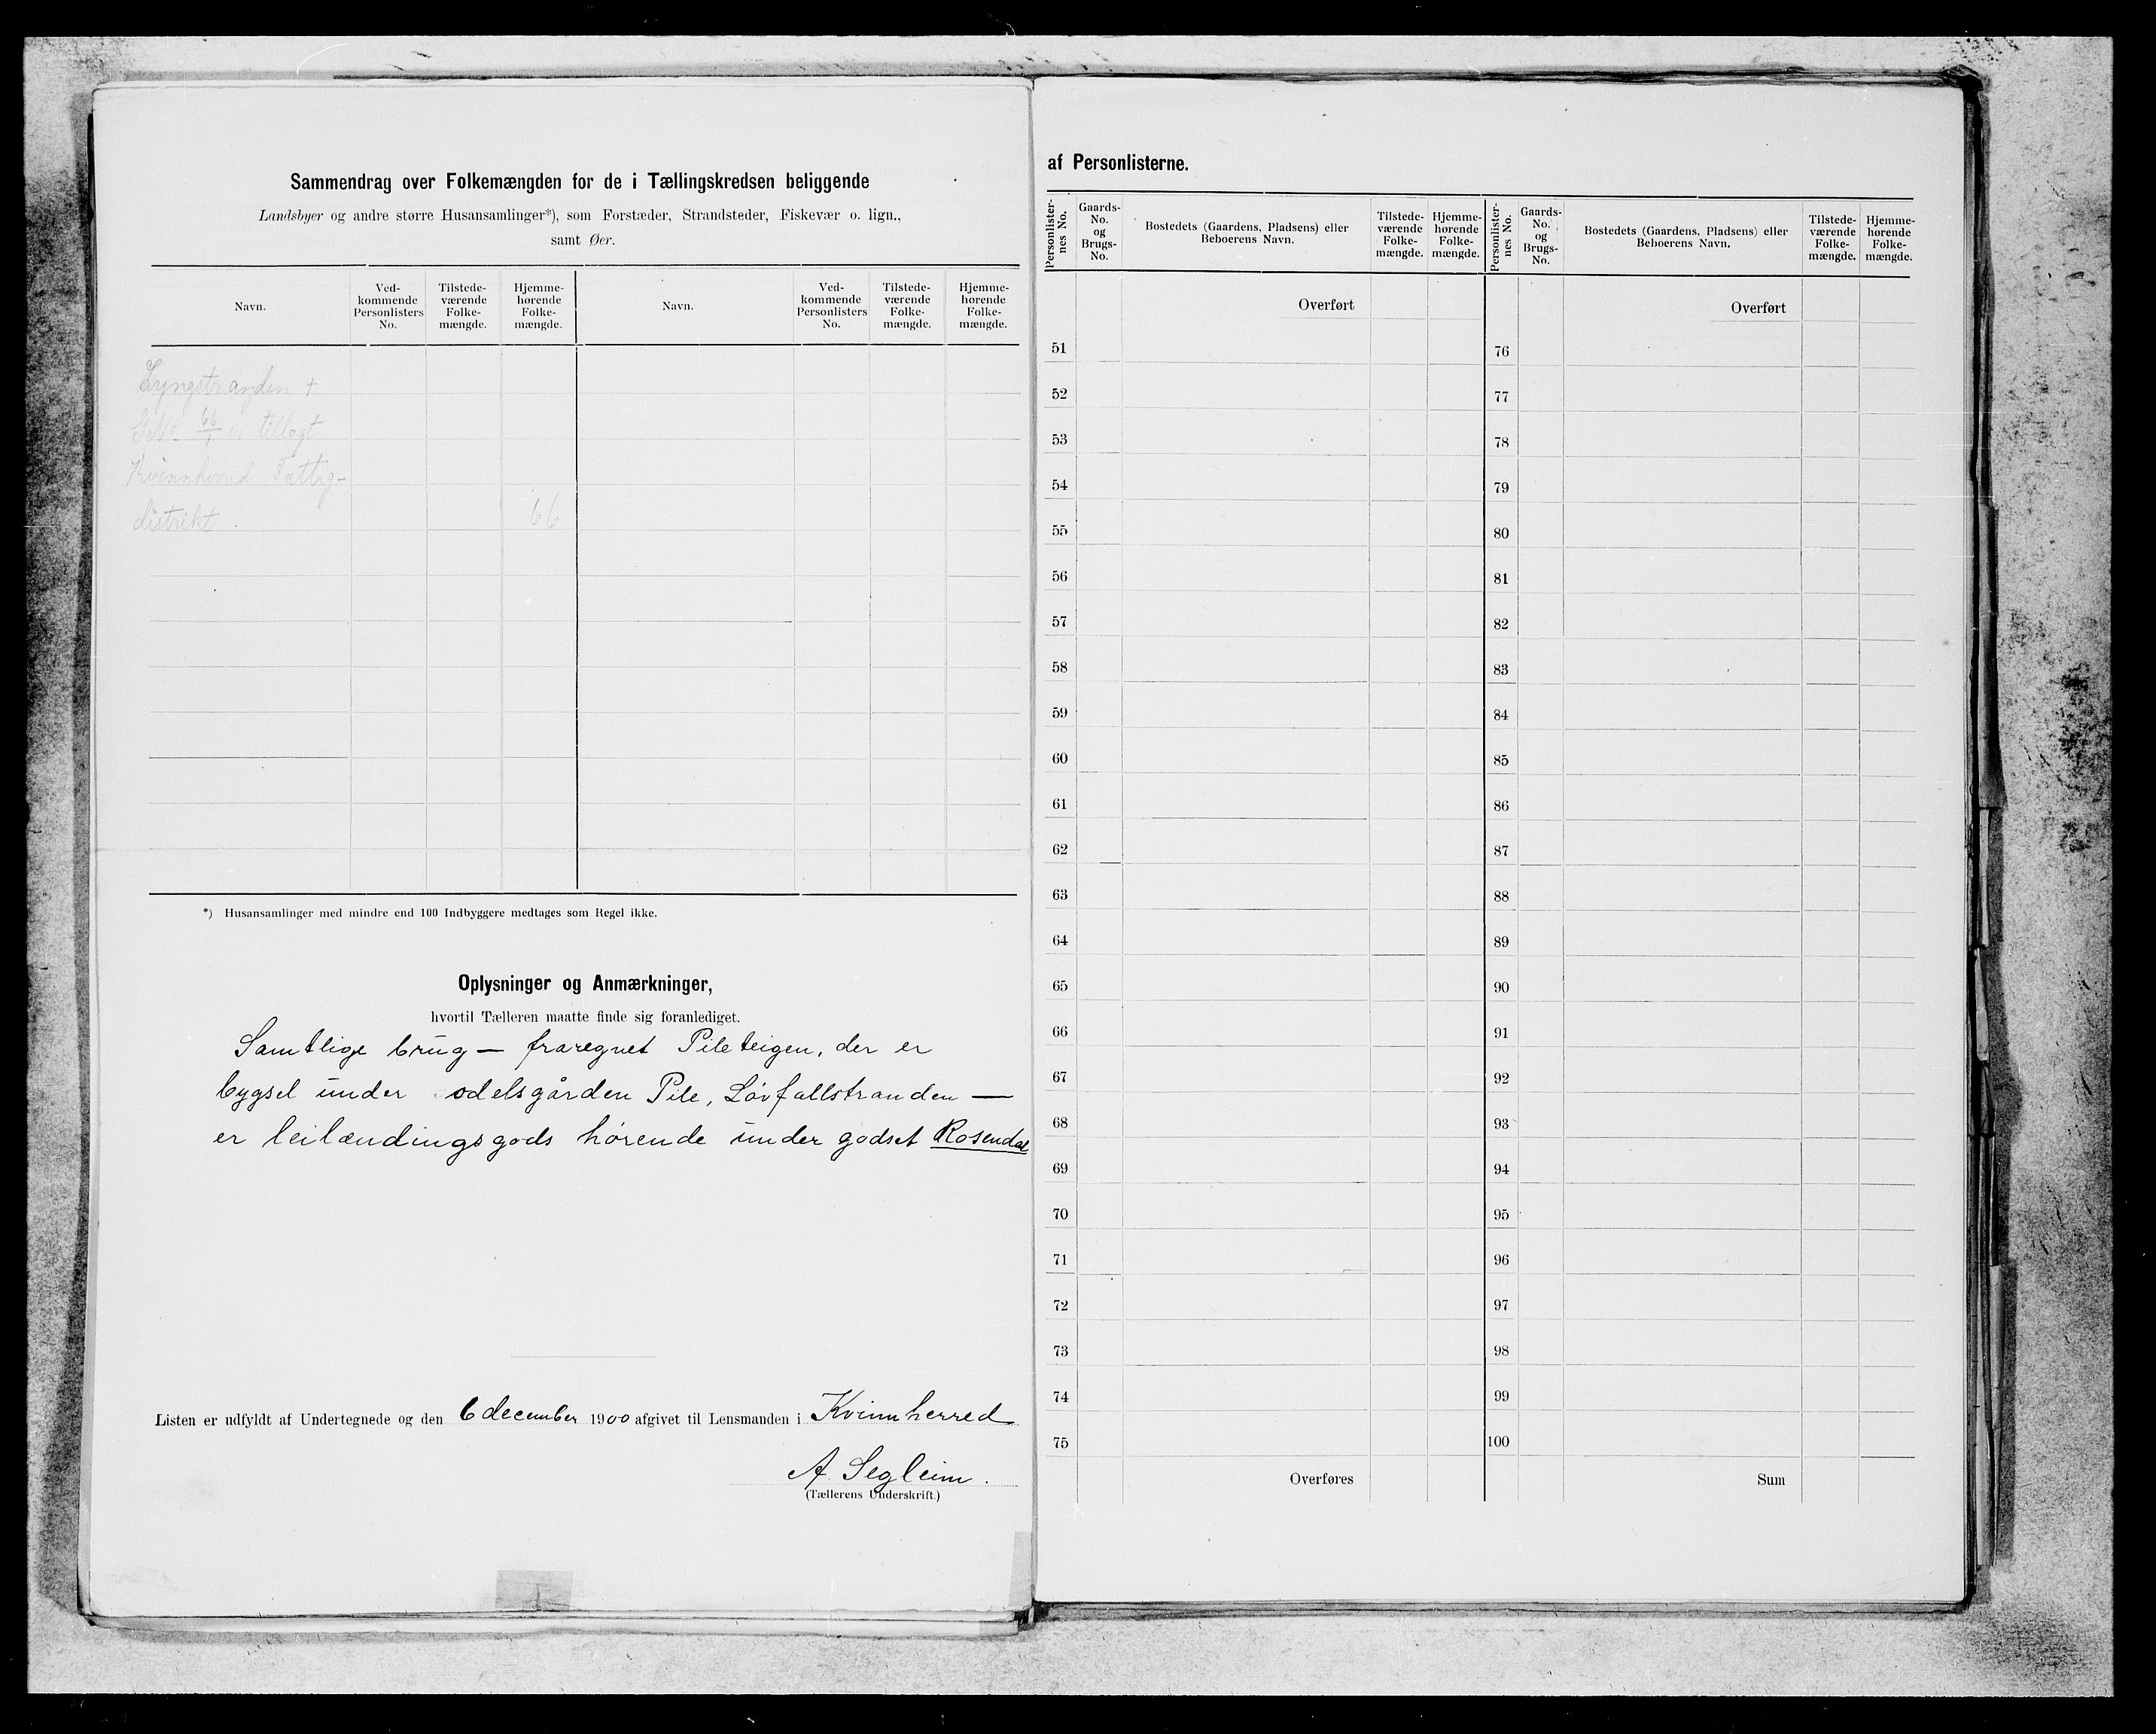 Sammendrag over Folkemængden for de i Tællingskredsen beliggende
Landsbyer og andre større Husansamlinger*), som Forstæder, Strandsteder, Fiskevær o. lign.,
samt Øer.
Navn. Ved-kommende Personlisters No. Tilstede-værende Folke-mængde. Hjemme-hørende Folke-mængde. Navn. Ved-kommende Personlisters No. Tilstede-værende Folke-mængde. Hjemme-hørende Folke-mængde.
Lyngstranden +
GNo. 66/1 er tillagt
Kvinnherred Fattig-
distrikt. 66
*) Husansamlinger med mindre end 100 Indbyggere medtages som Regel ikke.
Oplysninger og Anmærkninger,
hvortil Tælleren maatte finde sig foranlediget.
Samtlige brug — fraregnet Pileteigen, der er
bygsel under odelsgården Pile, Løvfallstranden —
er leilændingsgods hørende under godset Rosendal
Listen er udfyldt af Undertegnede og den 6 december 1900 afgivet til Lensmanden i Kvinnherred
A. Segleim.
(Tællerens Underskrift.)
af Personlisterne.
Personlister-nes No. Gaards-No. og Brugs-No. Bostedets (Gaardens, Pladsens) eller Beboerens Navn. Tilstede-værende Folke-mængde. Hjemme-hørende Folke-mængde. Personlister-nes No. Gaards-No. og Brugs-No. Bostedets (Gaardens, Pladsens) eller Beboerens Navn. Tilstede-værende Folke-mængde. Hjemme-hørende Folke-mængde.
Overført Overført
51 76
52 77
53 78
54 79
55 80
56 81
57 82
58 83
59 84
60 85
61 86
62 87
63 88
64 89
65 90
66 91
67 92
68 93
69 94
70 95
71 96
72 97
73 98
74 99
75 100
Overføres Sum